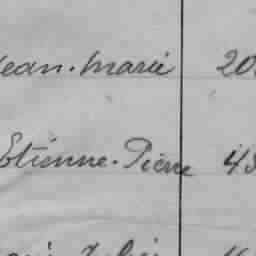 Jean-Marie 20
Etienne-Pierre 45